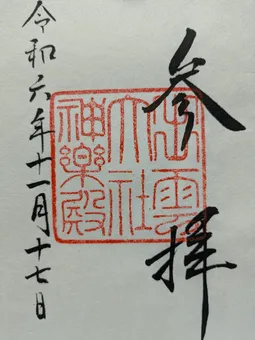 参拝
出雲
大社
神樂殿
令和六年十一月十七日